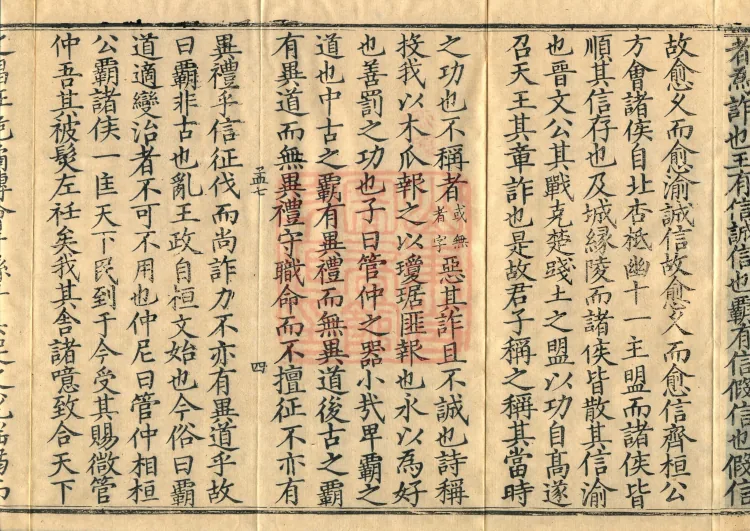 者為詐也王有信誠信也霸有信假信也假信
故愈久而愈渝誠信故愈久而愈信齊桓公
方會諸侯自北杏柢幽十一主盟而諸侯皆
順其信存也及城緣陵而諸侯皆散其信渝
也晉文公其戰克楚踐土之盟以功自高遂
召天王其章詐也是故君子稱之稱其當時
之功也不稱者或無者字惡其詐且不誠也詩稱
投我以木瓜報之以瓊琚匪報也永以為好
也善罰之功也子曰管仲之器小哉卑霸之
道也中古之霸有異禮而無異道後古之霸
有異道而無異禮守職命而不擅征不亦有
孟七 四
異禮乎信征伐而尚詐力不亦有異道乎故
曰霸非古也亂王政自桓文始也今俗曰霸
道適變治者不可不用也仲尼曰管仲相桓
公霸諸侯一匡天下民到于今受其賜微管
仲吾其被髮左衽矣我其舍諸噫致合天下